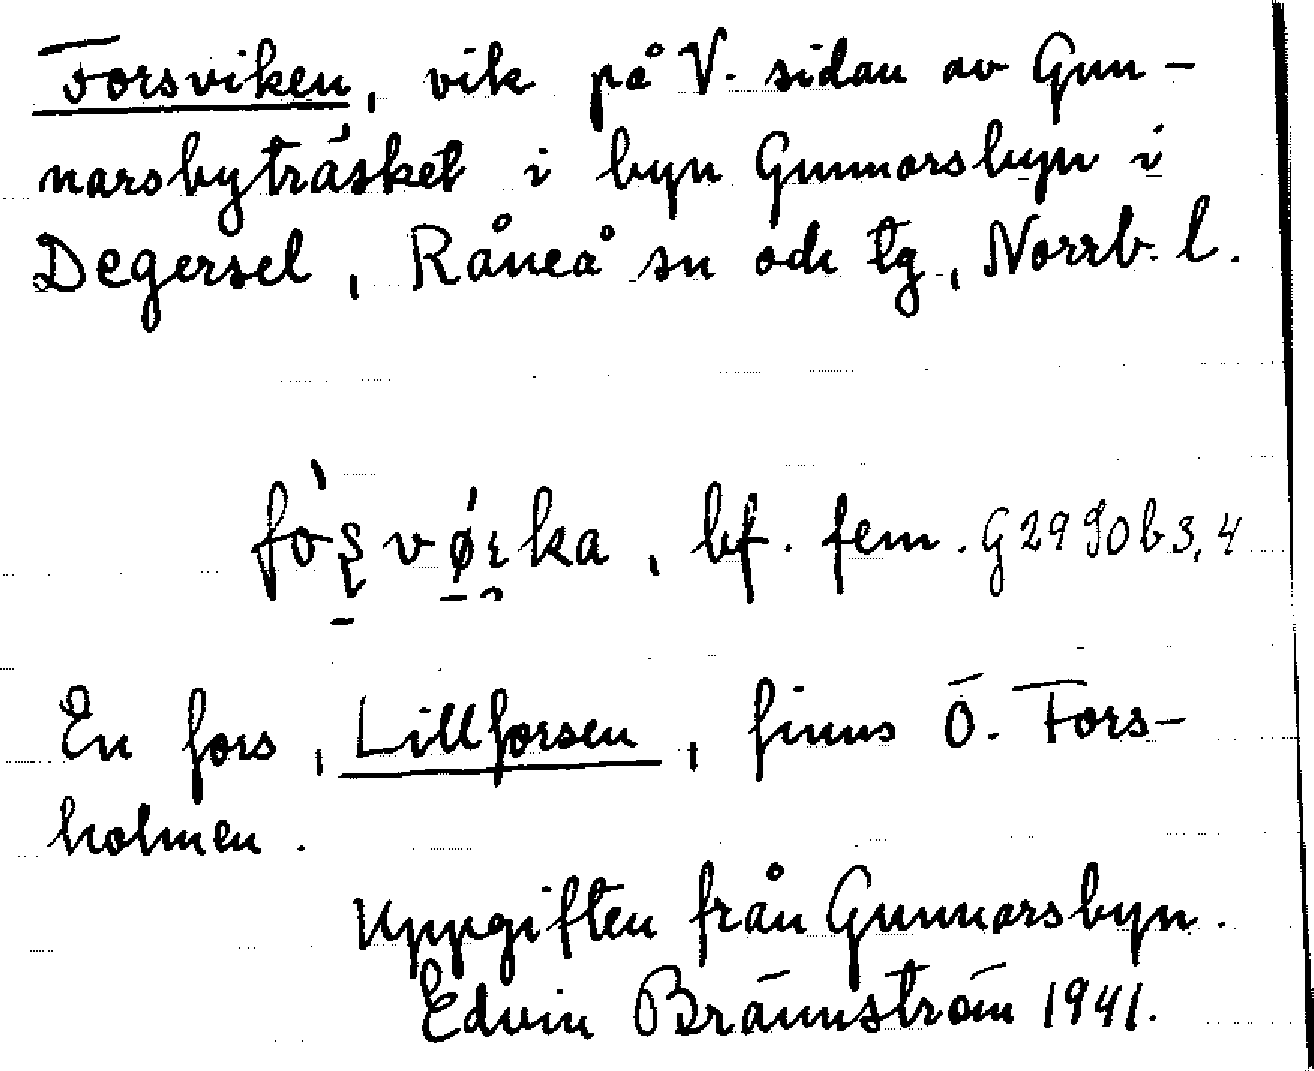 Forsviken, vik på V. sidan av Gun-
narsbyträsket i byn Gunnarsbyn i
Degersel, Råneå sn och tg, Norrb. l.
bf. fem. G 29 90b 3,4
En fors, Lillforsen, finns Ö. Fors-
holmen.
Uppgiften från Gunnarsbyn.
Edvin Brännström 1941.